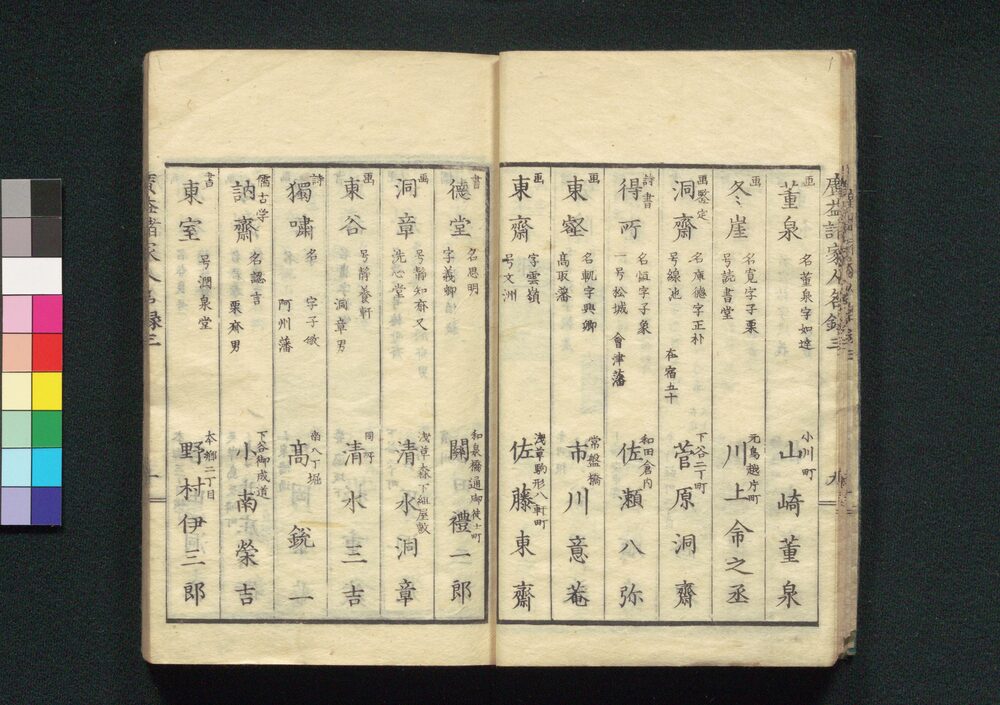 画
董泉
名董泉字如達
小川町
山崎董泉
画
冬崖
名寛字子栗
号読書堂
元鳥越片町
川上命之丞
画鑒定
洞齋
名庸德字正朴
号綠池
在宿五十
下谷二丁町
菅原洞齋
詩書
得所
名恆字子象
一号松城
會津藩
和田倉内
佐瀬八弥
画
東壑
名軏字興卿
高取藩
常盤橋
市川意菴
画
東齋
字雲嶺
号文洲
浅草駒形八軒町
佐藤東齋
書
德堂
名思明
字義卿
和泉橋通御徒士町
關禮二郎
画
洞章
号静知齋又
洗心堂
浅草森下組屋敷
清水洞章
画
東谷
号静養軒
洞章男
同所
清水三吉
詩
獨嘯
名
字子敏
阿州藩
南八丁堀
髙岡銳一
儒古学
訥齋
名認言
栗齋男
下谷御成道
小南榮吉
書
東室
号潤泉堂
本郷二丁目
野村伊三郎